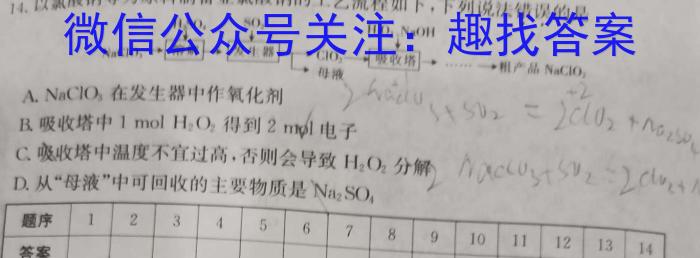 14. 以氯酸钠等为原料制备亚氯酸钠的工艺流程如下,下列说法错误的是
微信公众号关注：趣找答案
SO₂ NaOH
发生器 ClO₂ 吸收塔 …… 粗产品 NaClO₂
母液
A. NaClO₃ 在发生器中作氧化剂
B. 吸收塔中 1 mol H₂O₂ 得到 2 mol 电子
C. 吸收塔中温度不宜过高,否则会导致 H₂O₂ 分解
D. 从“母液”中可回收的主要物质是 Na₂SO₄
2NaClO₃+SO₂ = 2ClO₂+Na₂SO₄
+2
2 NaClO₃+SO₂ = 2ClO₂+
题序 1 2 3 4 5 6 7 8 9 10 11 12 13 14
答案